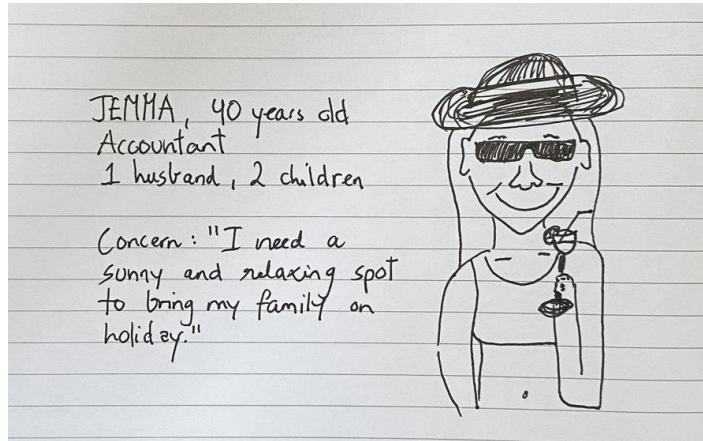 JEMMA, 40 years old
Accountant
1 husband, 2 children
Concern: "I need a
sunny and relaxing spot
to bring my family on
holiday."